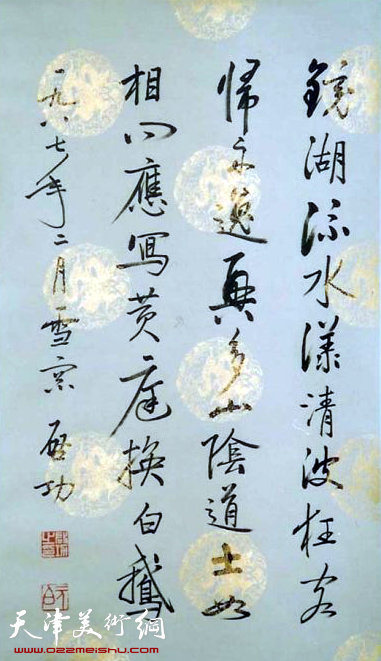 鏡湖流水漾清波狂客
歸舟逸興多山陰道士如
相見應寫黃庭換白鵝
一九八七年二月雪窗 啓功
天津美術網
www.022meishu.com